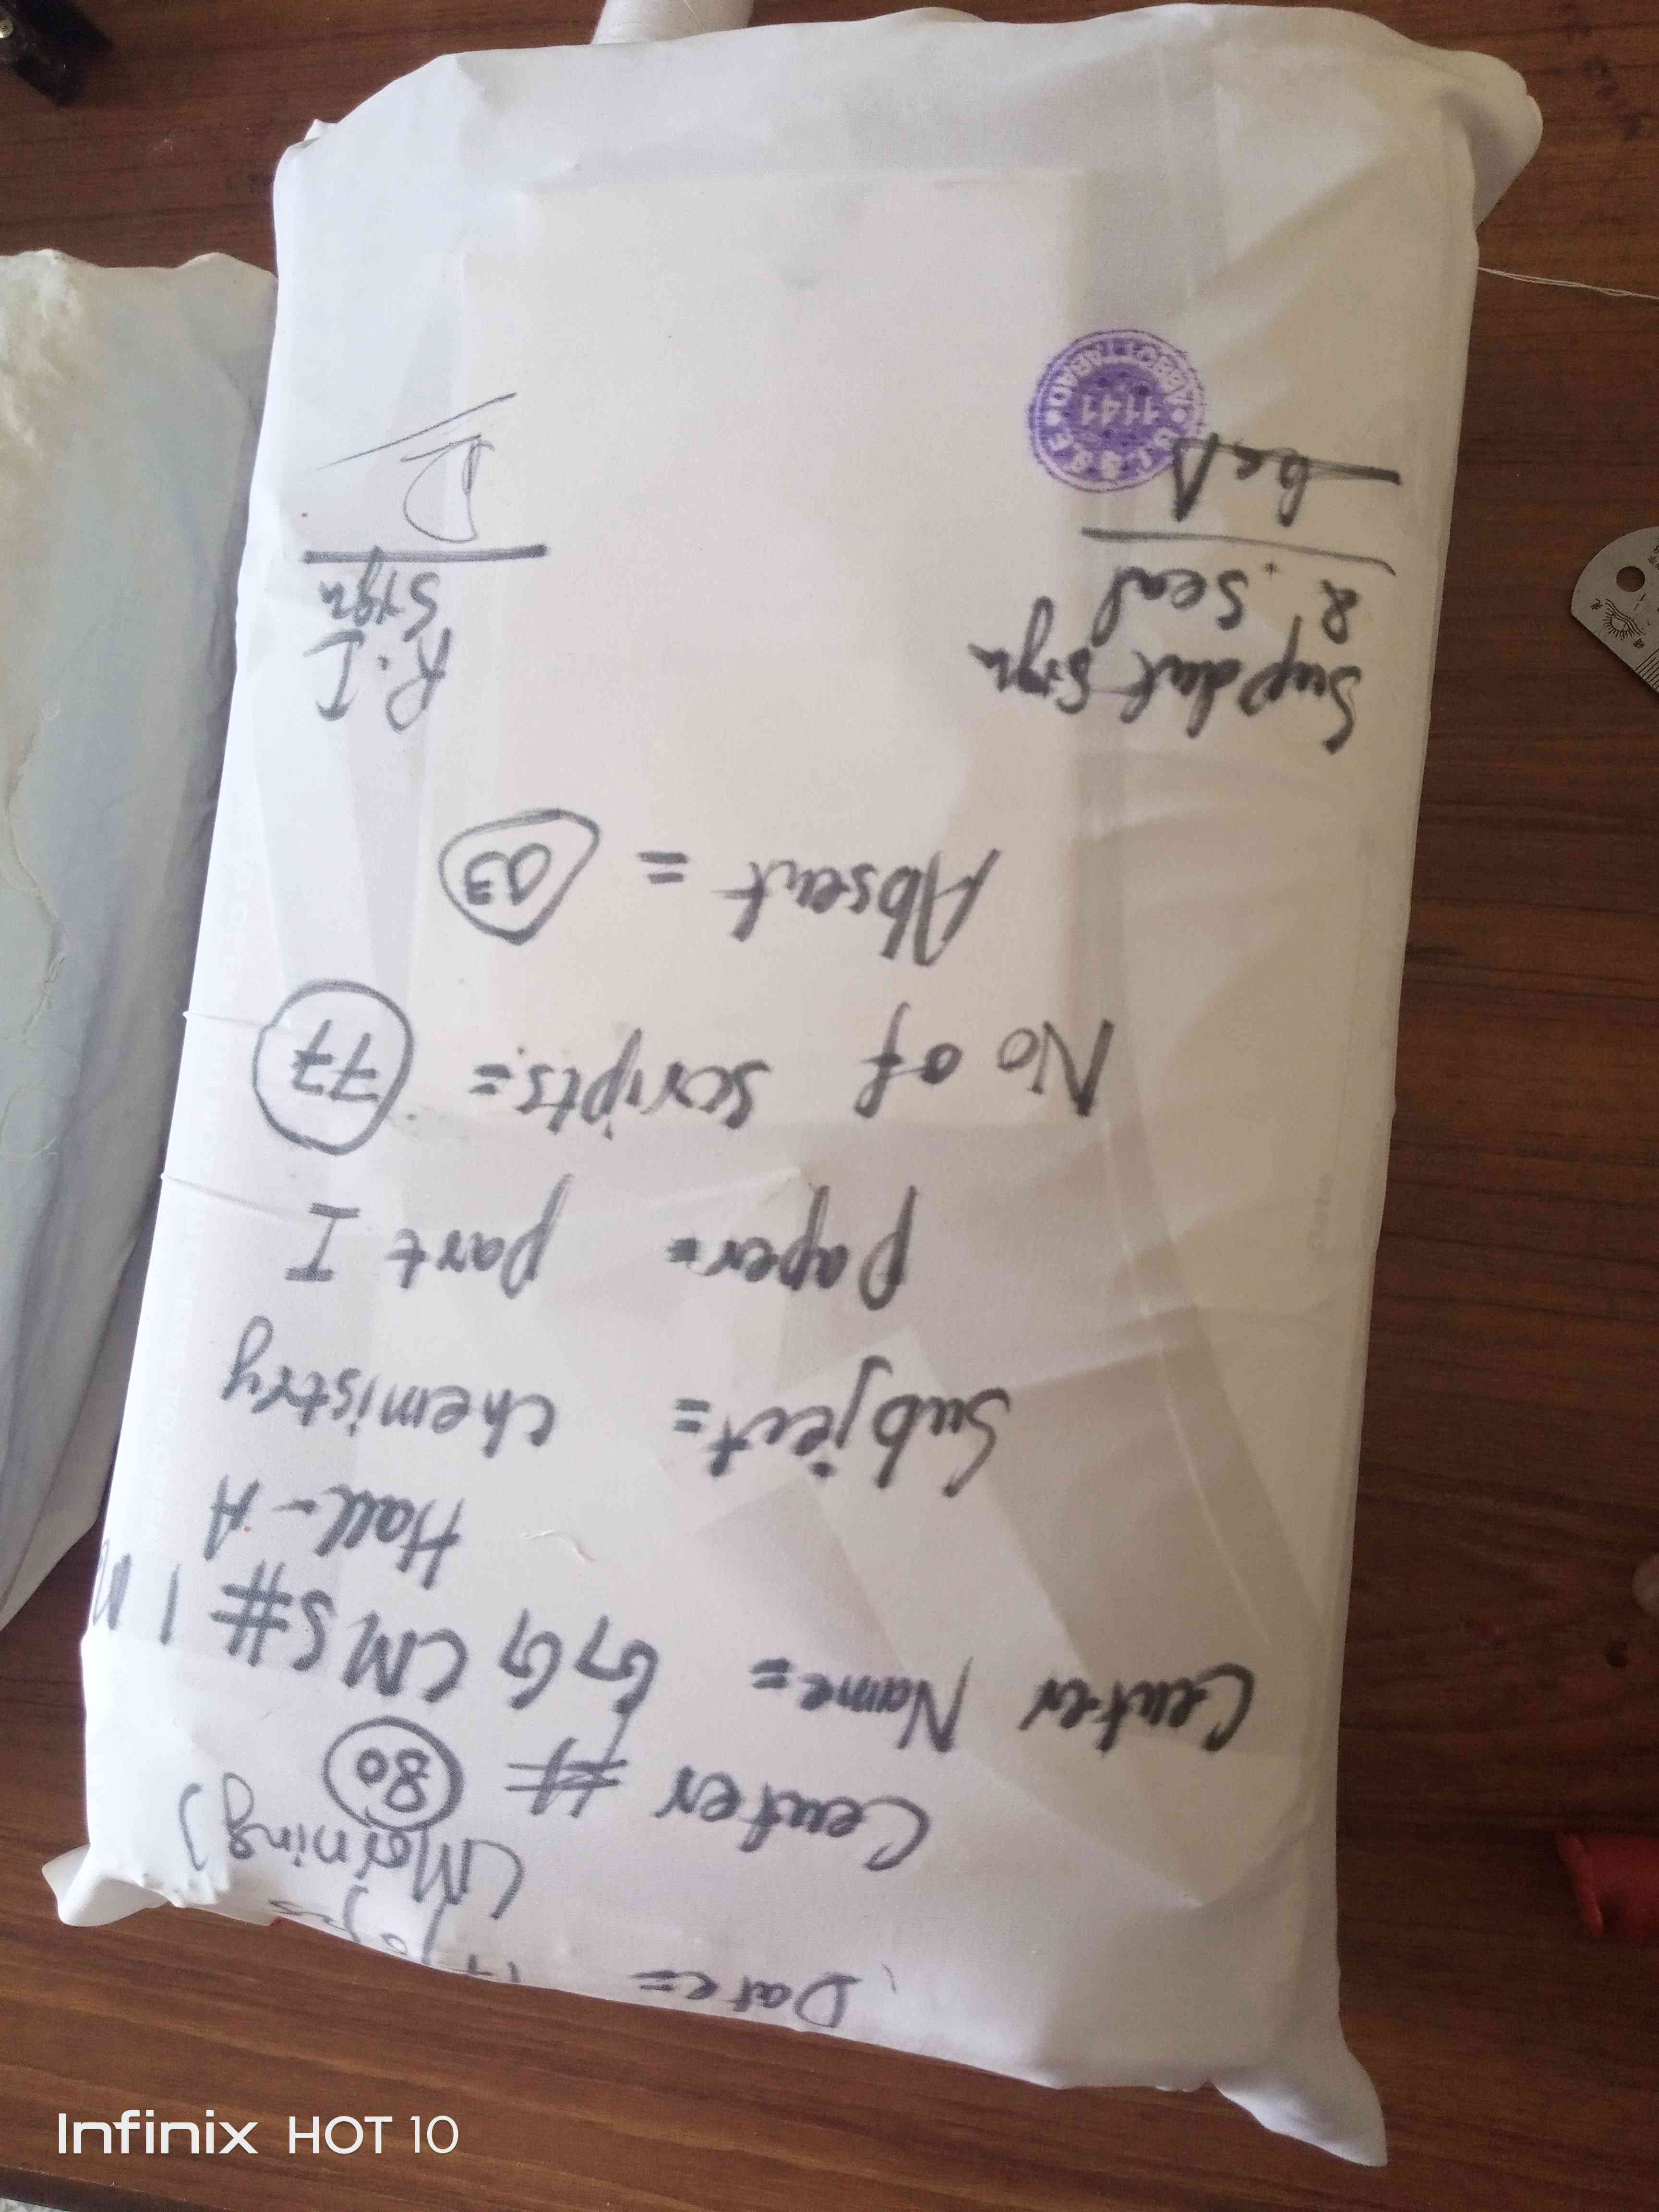 Date=
(Morning)
Center # 80
Center Name= GG CMS# 1
Hall-A
Subject= Chemistry
Paper= Part I
No of scripts= 77
Absent = 03
Supdut Sign
& Seal
R.I
Sign
B.I.S.E
1141
ABBOTTABAD
Infinix HOT 10